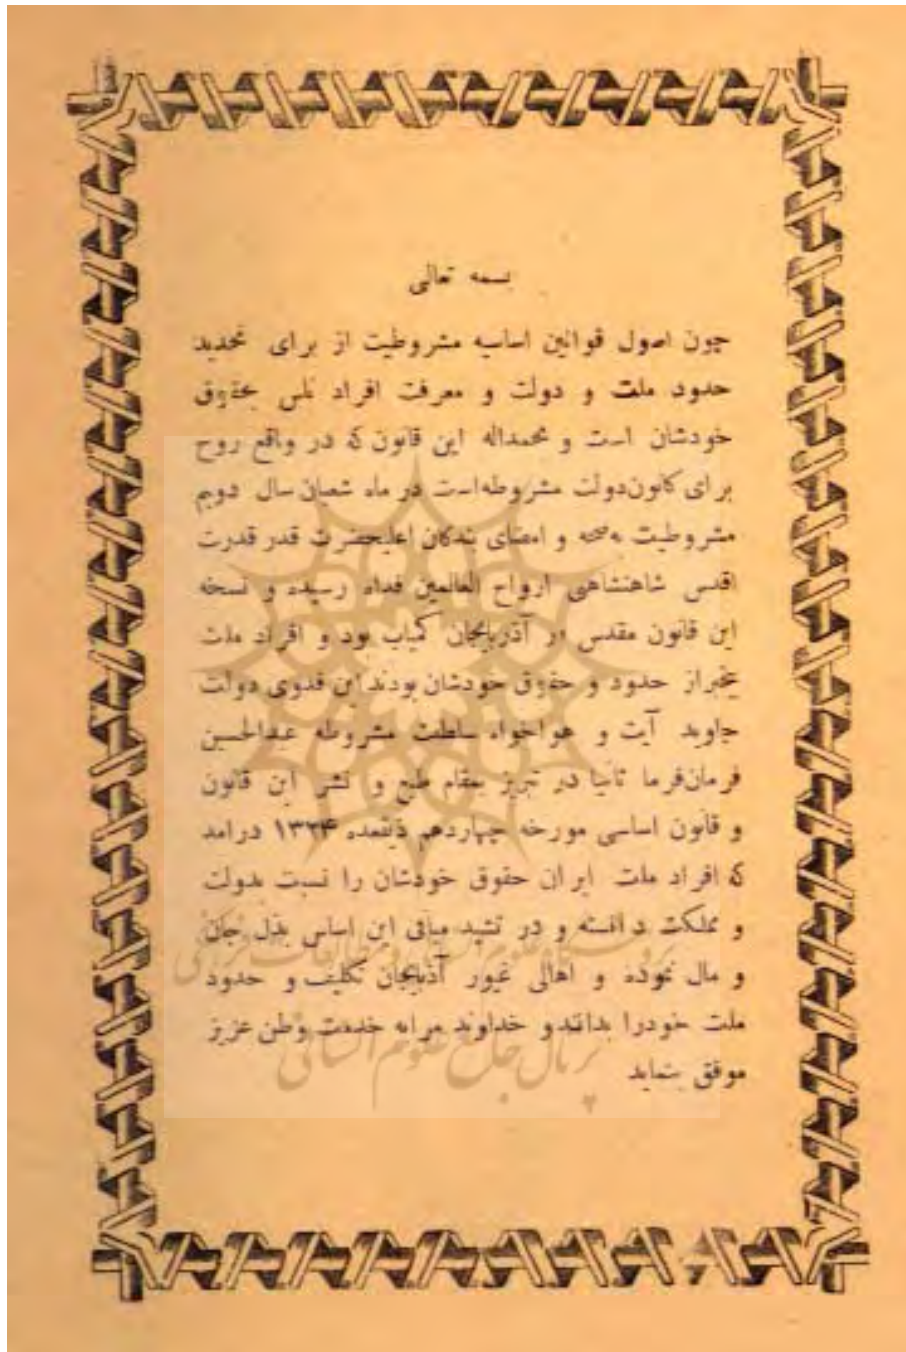 بسمه تعالی
چون اصول قوانین اساسیه مشروطیت از برای تحدید
حدود ملت و دولت و معرفت افراد ناس بحقوق
خودشان است و بحمداله این قانون که در واقع روح
برای کانون دولت مشروطه است در ماه شعبان سال دویم
مشروطیت بصحه و امضای بندگان اعلیحضرت قدر قدرت
اقدس شاهنشاهی ارواح العالمین فداه رسیده و نسخه
این قانون مقدس در آذربایجان کمیاب بود و افراد ملت
بیخبر از حدود و حقوق خودشان بودند این فدوی دولت
جاوید آیت و هواخواه سلطنت مشروطه عبدالحسین
فرمان‌فرما ثانیا در تبریز بمقام طبع و نشر این قانون
و قانون اساسی مورخه چهاردهم ذیقعده ۱۳۲۴ درامد
که افراد ملت ایران حقوق خودشان را نسبت بدولت
و مملکت دانسته و در تشید مبانی این اساس بذل جان
و مال نموده و اهالی غیور آذربایجان تکلیف و حدود
ملت خودرا بدانند و خداوند مرا به خدمت وطن عزیز
موفق بنماید
پژوهشگاه علوم انسانی و مطالعات فرهنگی
پرتال جامع علوم انسانی